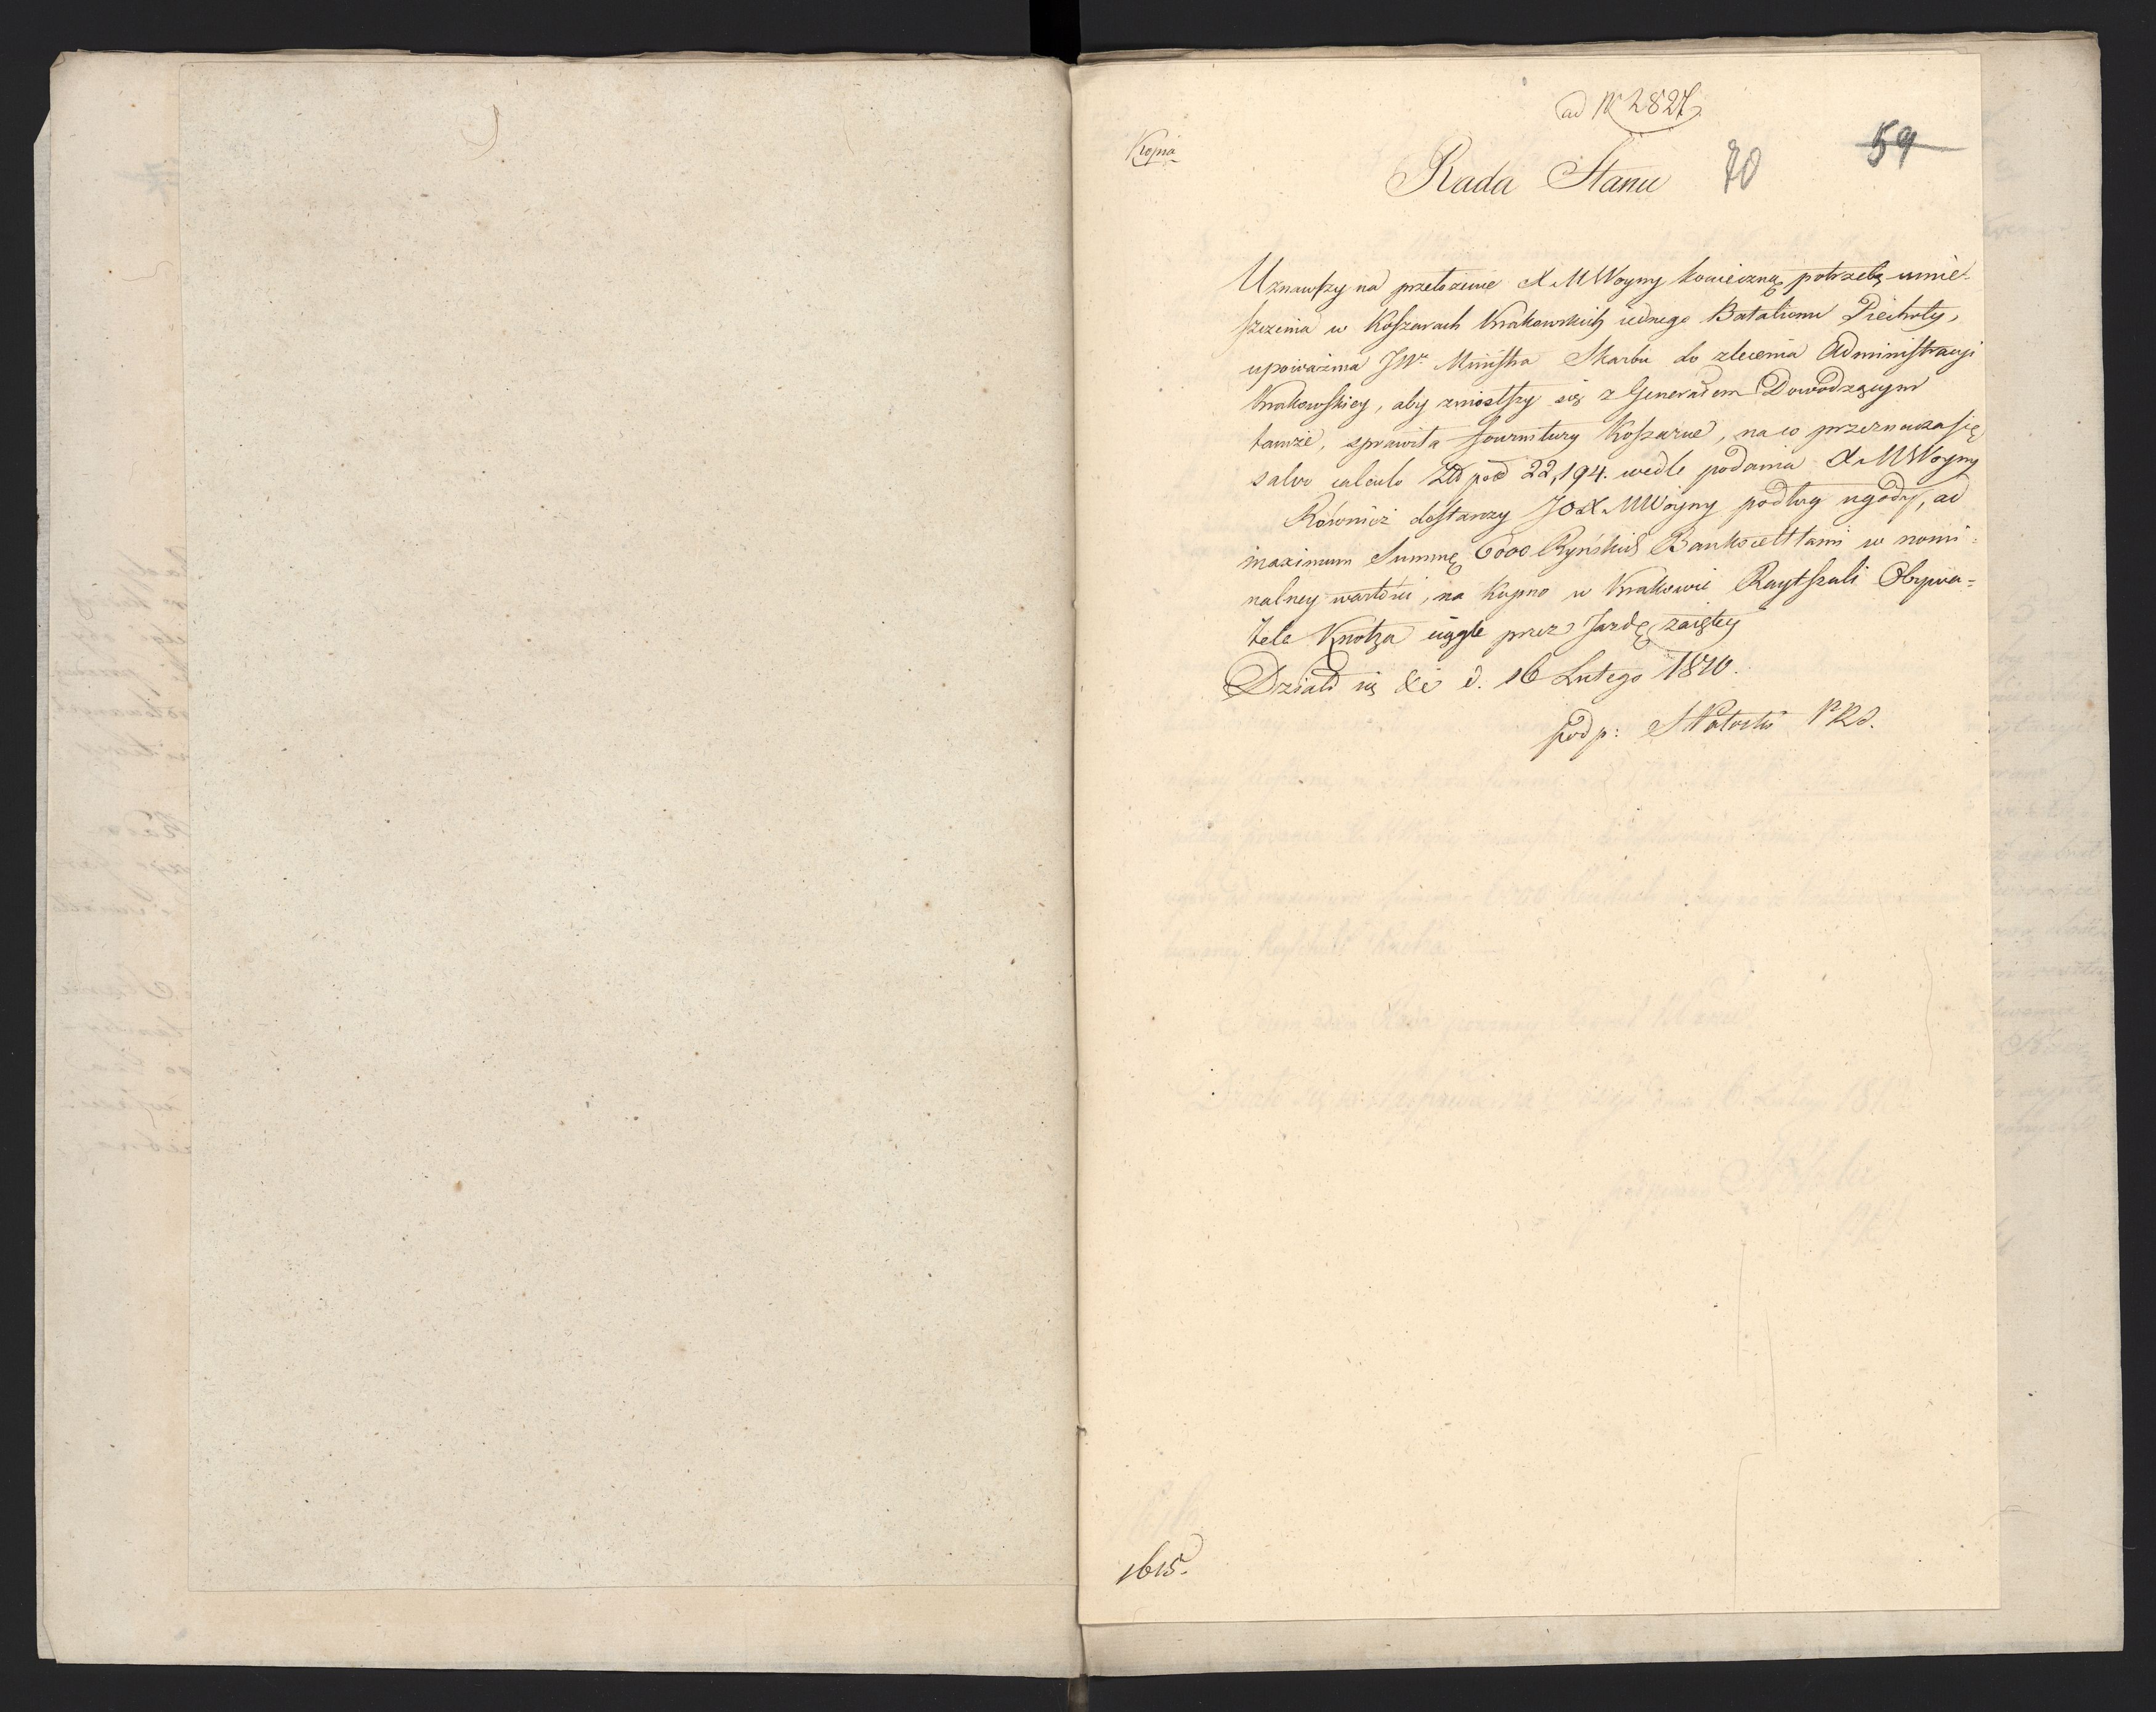 ad N 2827.
Kopia
59
Rada Stanu 70
Uznawszy na przełożenie X. M Woyny konieczną potrzebę umie-
szczenia w Koszarach Krakowskich iednego Batalionu Piechoty,
upoważnia JW. Ministra Skarbu do zlecenia Administracyi
Krakowskiey, aby zniosłszy się z Generałem Dowodzącym
tamże, sprawiła fournitury Koszarne, na co przeznacza się
salvo calculo Złł pod 22,194. wedle podania X. M Woyny
Również dostarczy JO X. M Woyny podług ugody, ad
maximum Summę 6000 Ryńskich Bankocettlami w nomi-
nalney wartości, na Kupno w Krakowie Raytszuli Obywa=
tela Knotza ciągle przez Jazdę zaiętey
Działo się &c d. 16 Lutego 1810.
podp: S Potocki P R S.
1615.